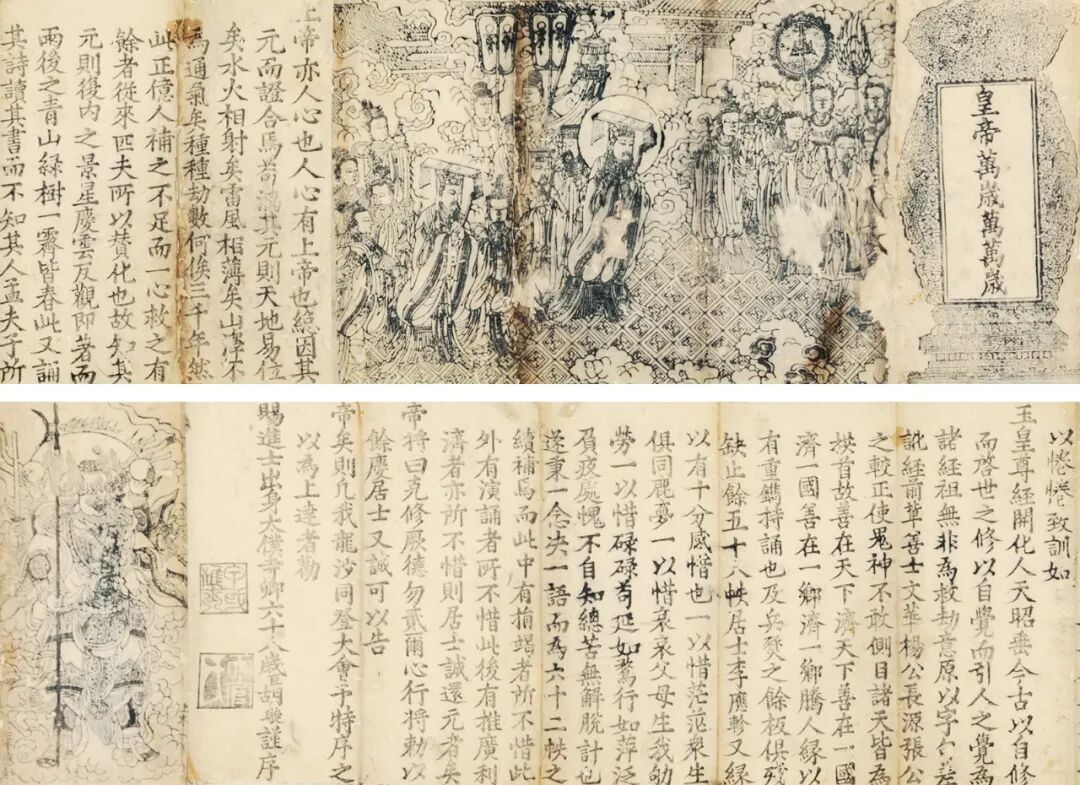 皇帝萬歲萬萬歲
上帝亦人心也人心有上帝也總因其
元而證合焉苟漓其元則天地易位
矣水火相射矣雷風相薄矣山澤不
為通氣矣種種劫數何俟三千年然
此正億人補之不足而一心救之有
餘者從來匹夫所以賛化也故知其
元則後內之景星慶雲反觀即著而
雨後之青山緑樹一霽皆春此又誦
其詩讀其書而不知其人孟夫子所
以惓惓致訓如
玉皇尊經開化人天昭垂今古以自修
而啓世之修以自覺而引人之覺為
諸經祖無非為救劫意原以字句差
訛經前輩善士文華楊公長源張公
之較正使鬼神不敢側目諸天皆為
拱首故善在天下濟天下善在一國
濟一國善在一鄉濟一鄉騰人緣以
有重鐫持誦也及兵燹之餘板俱殘
缺止餘五十八帙居士李應軫又緣
以有十分感惜也一以惜茫茫衆生
俱同夢一以惜哀哀父母生我劬
勞一以惜碌碌苟延如騖行如萍泛
負疚處愧不自知總苦無解脫計也
遂秉一念决一語而為六十二帙之
續補焉而此中有捐竭者所不惜此
外有演誦者所不惜此後有推廣利
濟者亦所不惜則居士誠還元者矣
帝將曰克修厥德勿貳爾心行將勅以
餘慶居士又誠可以告
帝矣則凡我龍沙同登大會予特序之
以為上達者勸
賜進士出身大僕寺卿六十八歲胡璇謹序